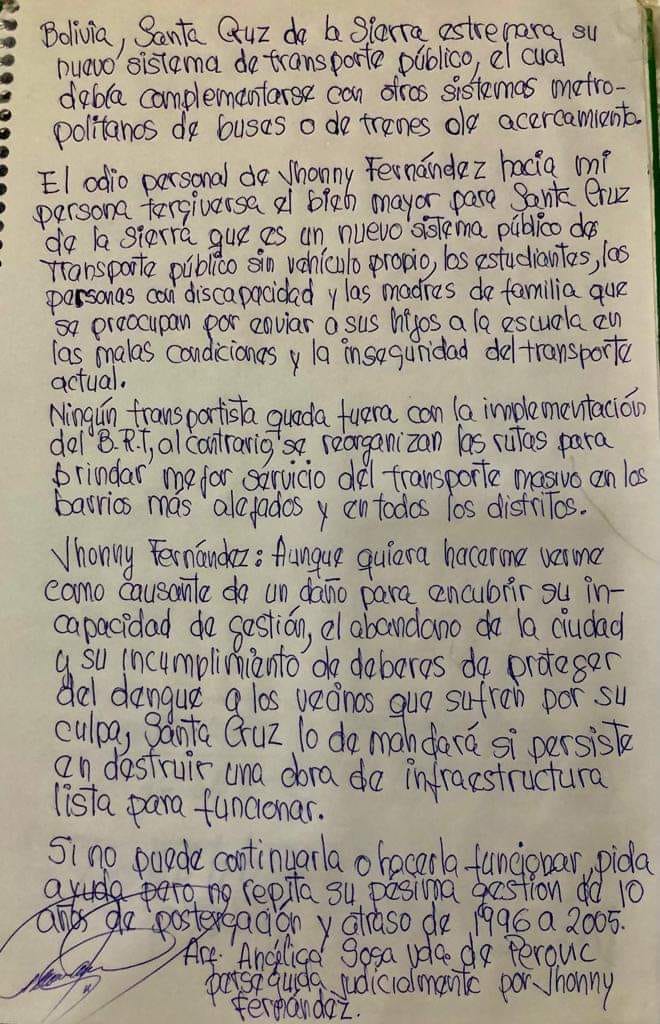 Bolivia, Santa Cruz de la Sierra estrenara su
nuevo sistema de transporte público, el cual
debía complementarse con otros sistemas metro-
politanos de buses o de trenes de acercamiento.
El odio personal de Jhonny Fernández hacia mi
persona tergiversa el bien mayor para Santa Cruz
de la Sierra que es un nuevo sistema público de
transporte público sin vehículo propio, los estudiantes, las
personas con discapacidad y las madres de familia que
se preocupan por enviar a sus hijos a la escuela en
las malas condiciones y la inseguridad del transporte
actual.
Ningún transportista queda fuera con la implementación
del B.R.T, al contrario se reorganizan las rutas para
brindar mejor servicio del transporte masivo en los
barrios más alejados y en todos los distritos.
Jhonny Fernández: Aunque quiera hacerme verme
como causante de un daño para encubrir su in-
capacidad de gestión, el abandono de la ciudad
y su incumplimiento de deberes de proteger
del dengue a los vecinos que sufren por su
culpa, Santa Cruz lo demandará si persiste
en destruir una obra de infraestructura
lista para funcionar.
Si no puede continuarla o hacerla funcionar, pida
ayuda pero no repita su pésima gestión de 10
años de postergación y atraso de 1996 a 2005.
Arq. Angélica Sosa vda. de Perovic
perseguida judicialmente por Jhonny
Fernández.